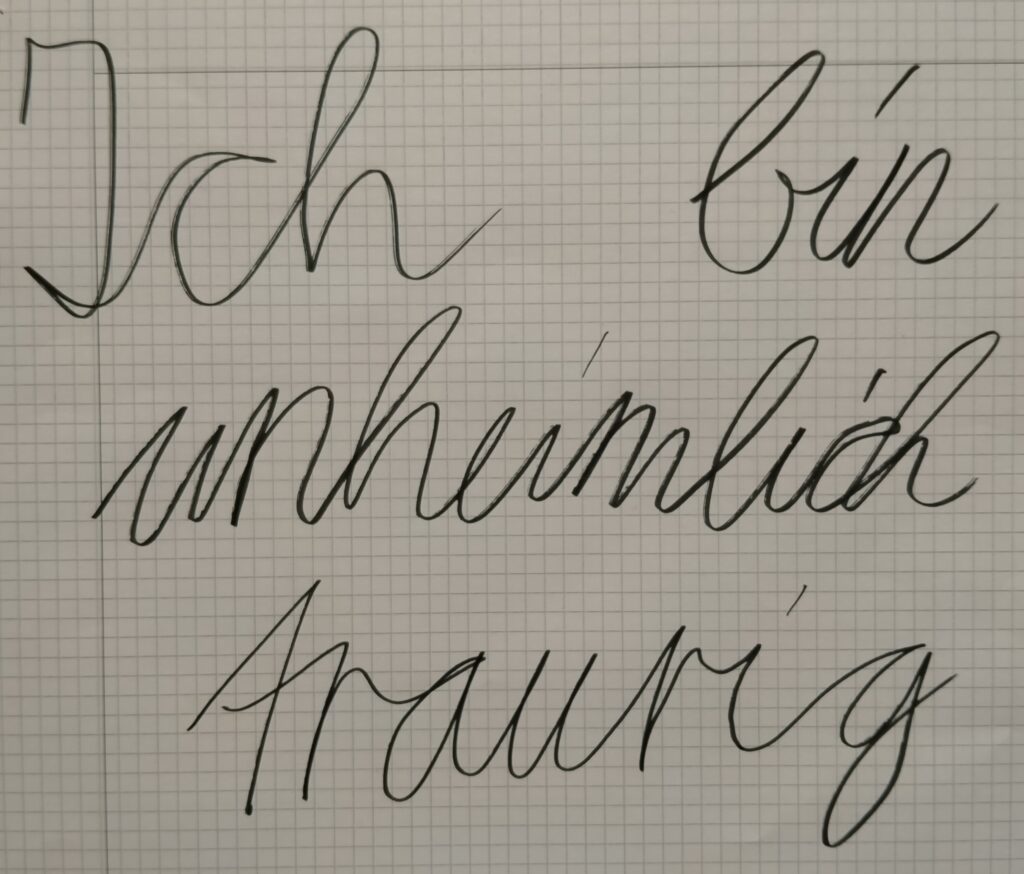 Ich bin
unheimlich
traurig